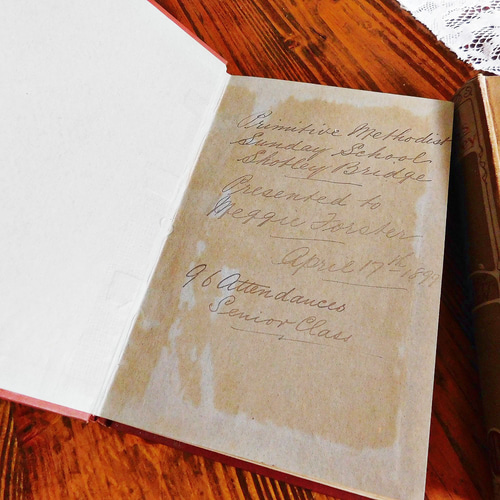 Primitive Methodist
Sunday School
Shotley Bridge
Presented to
Meggie Forster
April 17th 1897
96 Attendances
Senior Class